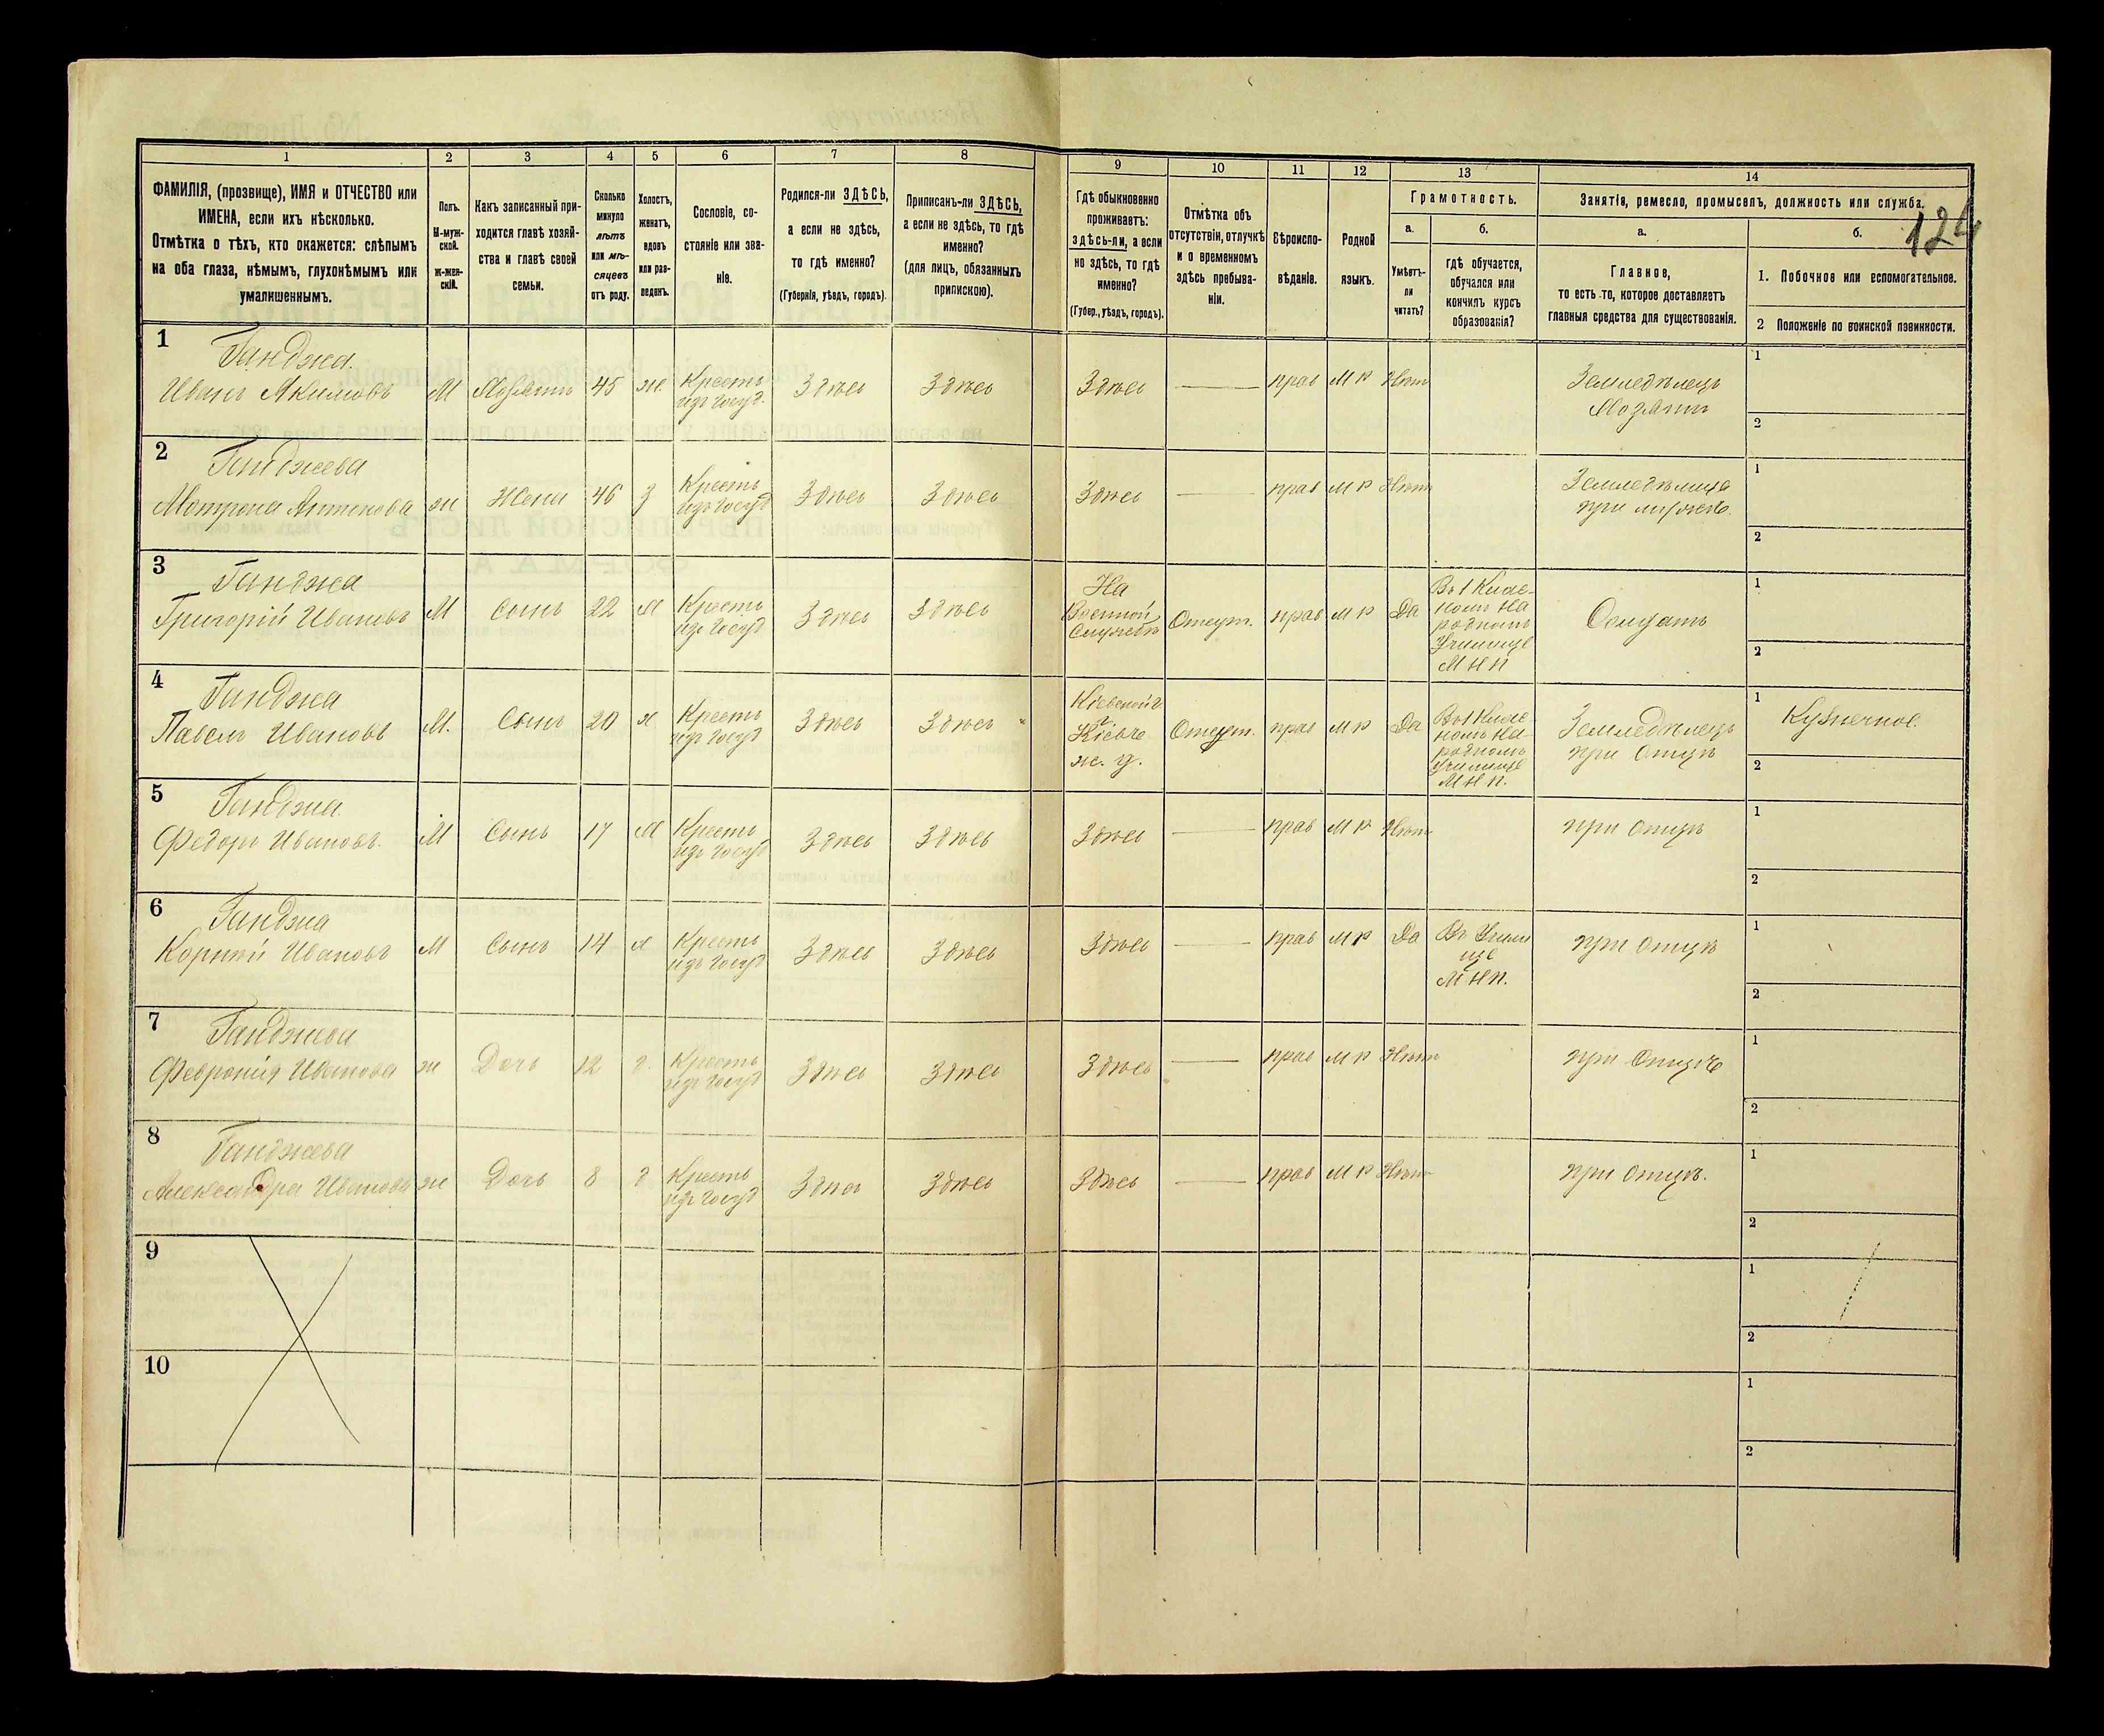 124
1 2 3 4 5 6 7 8 9 10 11 12 13 14
ФАМИЛІЯ, (прозвище), ИМЯ и ОТЧЕСТВО или
ИМЕНА, если ихъ нѣсколько.
Отмѣтка о тѣхъ, кто окажется: слѣпымъ
на оба глаза, нѣмымъ, глухонѣмымъ или
умалишеннымъ.
Полъ.
М-муж-
ской.
Ж-жен-
скій.
Какъ записанный при-
ходится главѣ хозяй-
ства и главѣ своей
семьи.
Сколько
минуло
лѣтъ
или мѣ-
сяцевъ
отъ роду.
Холостъ,
женатъ,
вдовъ
или раз-
веденъ.
Сословіе, со-
стояніе или зва-
ніе.
Родился-ли ЗДѢСЬ,
а если не здѣсь,
то гдѣ именно?
(Губернія, уѣздъ, городъ).
Приписанъ-ли ЗДѢСЬ,
а если не здѣсь, то гдѣ
именно?
(для лицъ, обязанныхъ
припискою).
Гдѣ обыкновенно
проживаетъ:
здѣсь-ли, а если
не здѣсь, то гдѣ
именно?
(Губер., уѣздъ, городъ).
Отмѣтка объ
отсутствіи, отлучкѣ
и о временномъ
здѣсь пребыва-
ніи.
Вѣроиспо-
вѣданіе.
Родной
языкъ.
Грамотность.
а.
Умѣетъ-
ли
читать?
б.
гдѣ обучается,
обучался или
кончилъ курсъ
образованія?
Занятія, ремесло, промыселъ, должность или служба.
а.
Главное,
то есть то, которое доставляетъ
главныя средства для существованія.
б.
1. Побочное или вспомогательное.
2 Положеніе по воинской повинности.
1 Ганджа.
Иванъ Акимовъ М Хозяинъ 45 ж. Крестъ
изъ госуд. Здѣсь Здѣсь Здѣсь — прав М Р Нѣтъ Земледѣлецъ
Хозяинъ 1
2
2 Ганджева
Мотрона ж Жена 46 з Крестъ
изъ госуд Здѣсь Здѣсь Здѣсь — прав М Р Нѣтъ
при мужѣ. 1
2
3 Ганджа
Григорій Ивановъ М Сынъ 22 х Крестъ
изъ госуд Здѣсь Здѣсь На
Военной
Службѣ Отсут. прав М Р Да Въ 1 Клас-
номъ На
родномъ
Училище
М Н П Солдатъ 1
2
4 Ганджа
Павелъ Ивановъ М. Сынъ 20 х Крестъ
изъ госуд Здѣсь Здѣсь Кіевской г
Отсут. прав М Р Да Въ 1 Клас-
номъ На-
родномъ
Училище
М Н П. Земледѣлецъ
при Отцѣ 1 Кузнечное.
2
5 Ганджа.
Федоръ Ивановъ. М Сынъ 17 х Крестъ
изъ госуд Здѣсь Здѣсь Здѣсь — прав М Р Нѣтъ при Отцѣ 1
2
6 Ганджа
Корній Ивановъ М Сынъ 14 х Крестъ
изъ госуд Здѣсь Здѣсь Здѣсь — прав М Р Да Въ Учили
ще
М Н П. при Отцѣ 1
2
7 Ганджева
Февронія Иванова ж Дочь 12 д. Крестъ
изъ госуд Здѣсь Здѣсь Здѣсь — прав М Р Нѣтъ при Отцѣ 1
2
8 Ганджева
Александра Иванова ж Дочь 8 д Крестъ
изъ госуд Здѣсь Здѣсь Здѣсь — прав М Р Нѣтъ при Отцѣ. 1
2
9 1
2
10 1
2